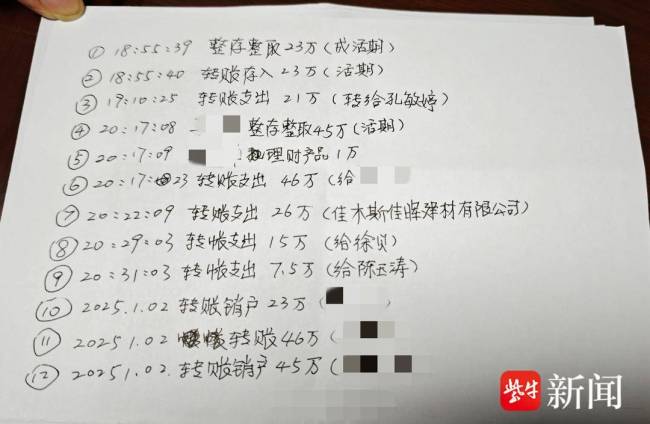 ① 18:55:39 整存整取23万(成活期)
② 18:55:40 转账存入23万(活期)
③ 19:10:25 转账支出21万(转给孔敏婷)
④ 20:17:08 整存整取45万(活期)
⑤ 20:17:09 理财产品1万
⑥ 20:17:23 转账支出46万(给
⑦ 20:22:09 转账支出26万(佳木斯佳晖建材有限公司)
⑧ 20:29:03 转帐支出15万(给徐贝)
⑨ 20:31:03 转帐支出7.5万(给陈玉涛)
⑩ 2025.1.02 转账销户23万(
⑪ 2025.1.02 转账46万(
⑫ 2025.1.02.转账销户45万(
紫牛新闻